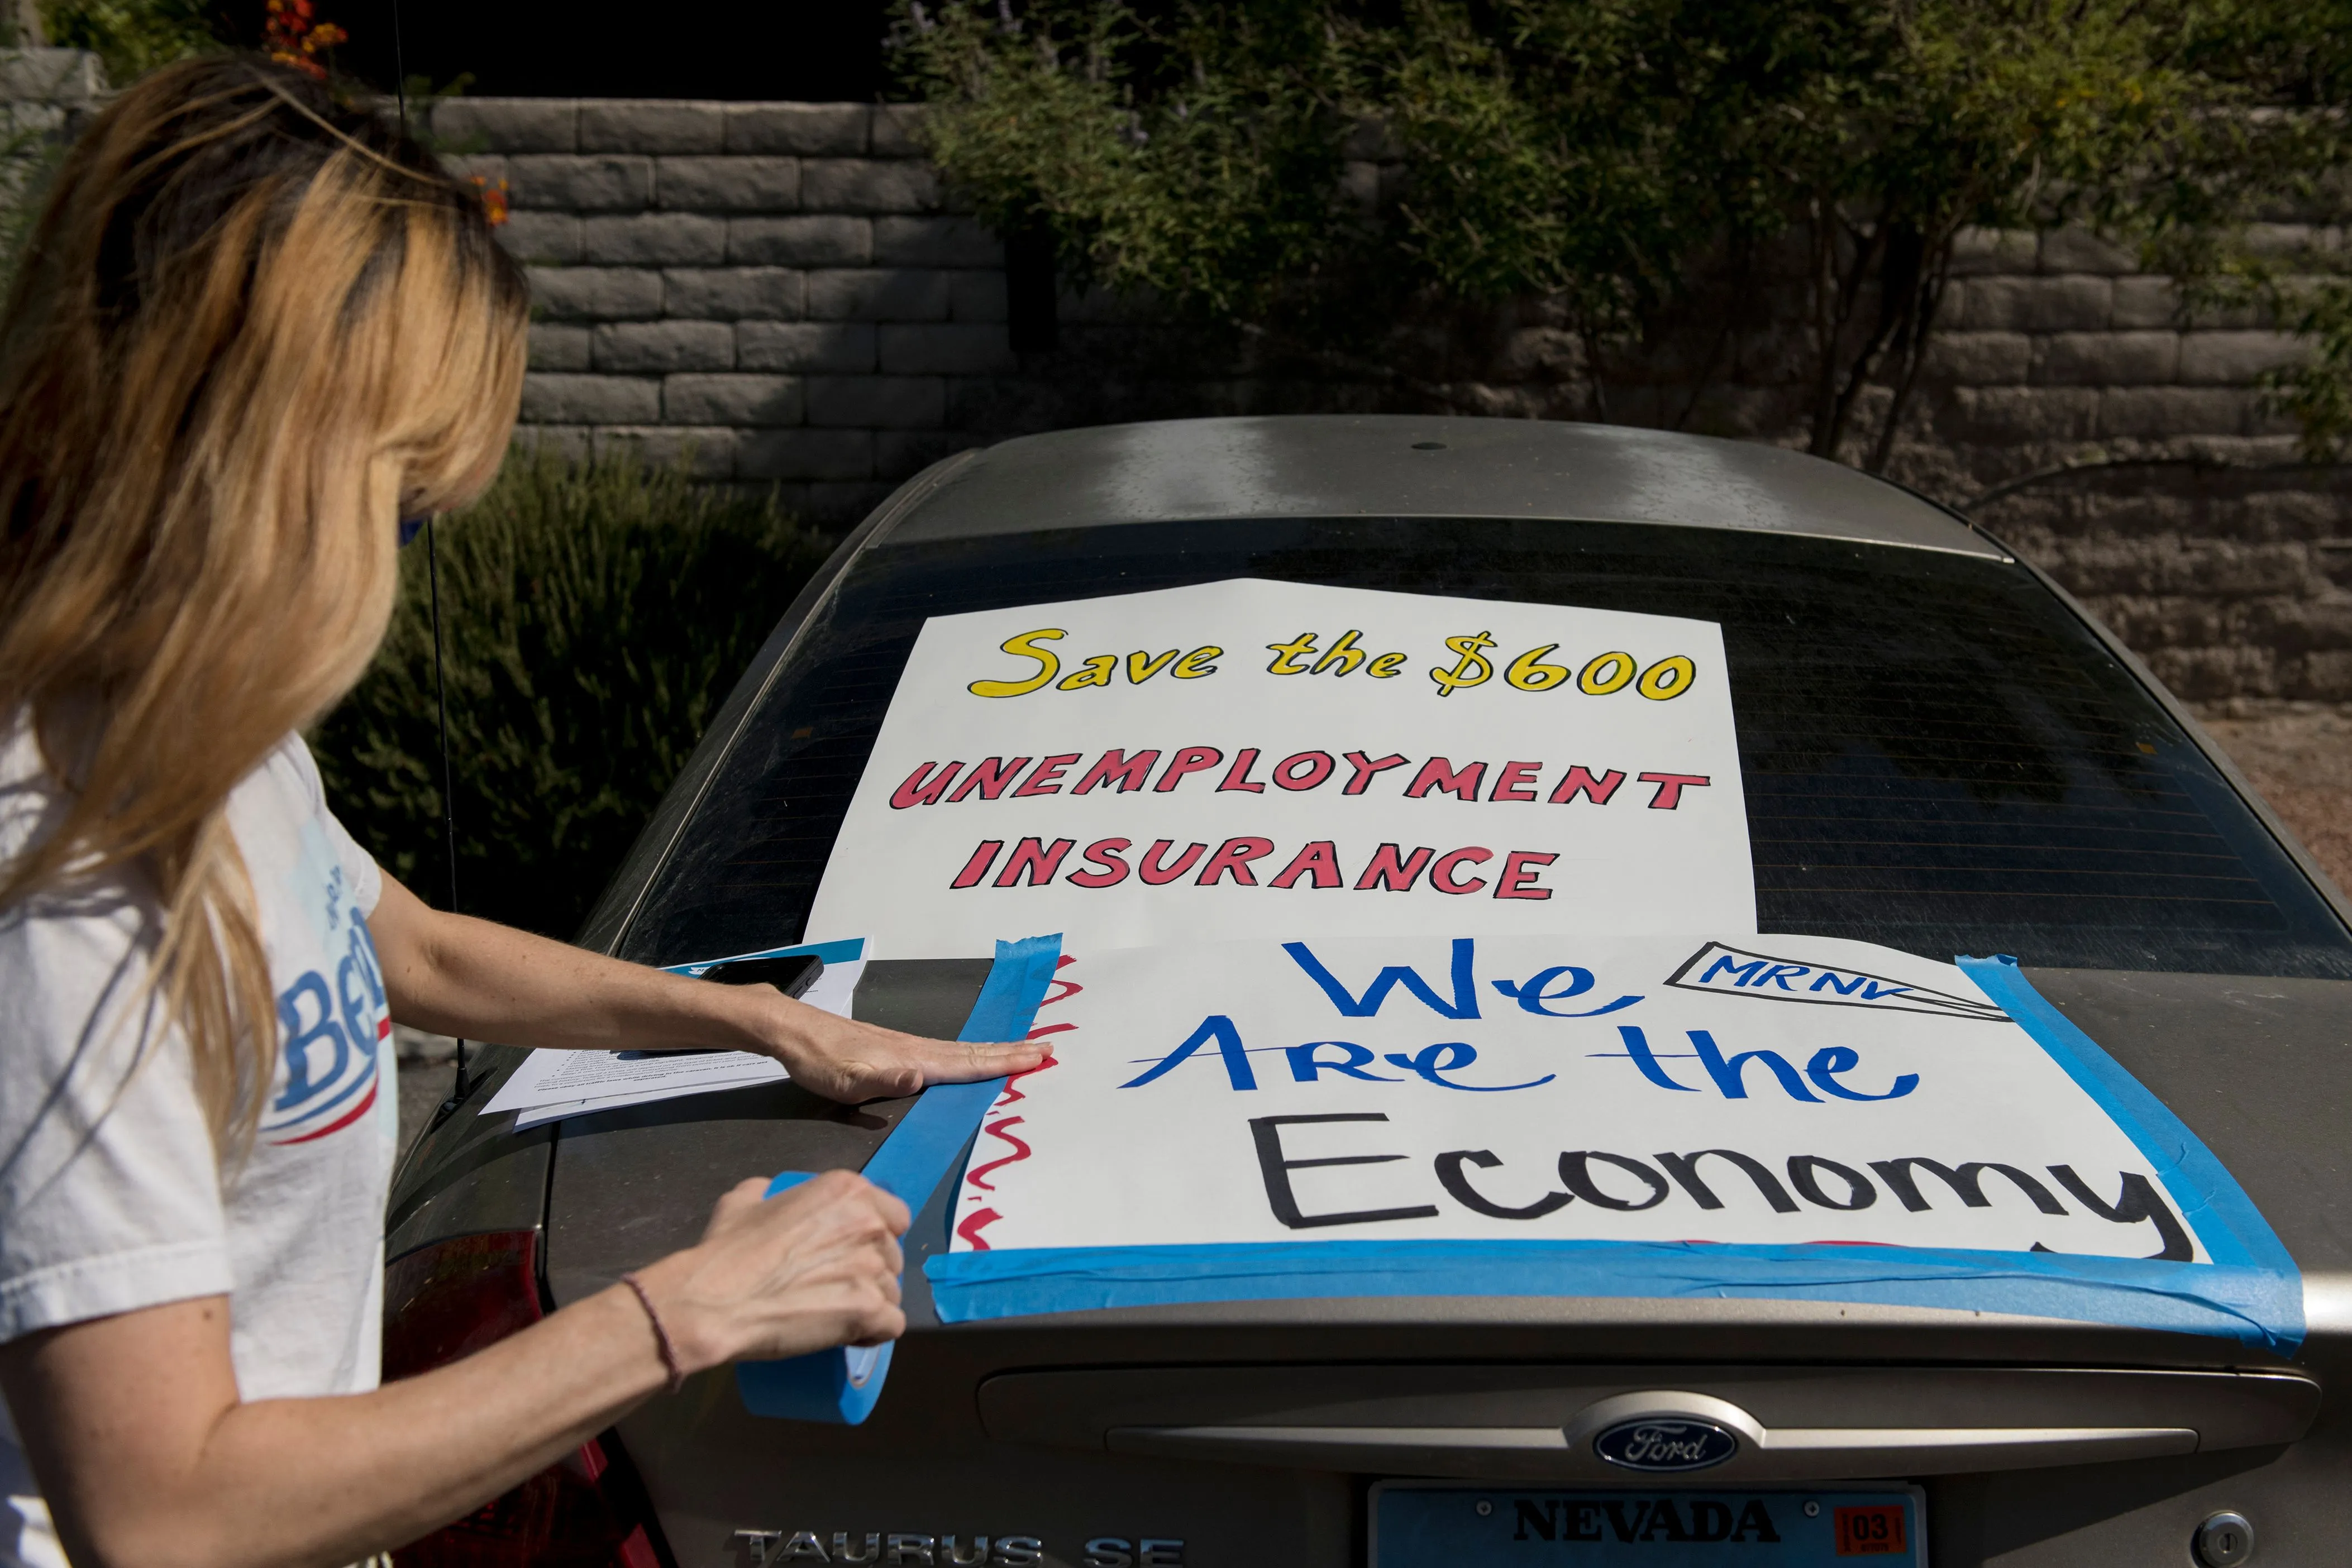 Save the $600
UNEMPLOYMENT
INSURANCE
We
MRNV
Are the
Economy
Ford
NEVADA
03
TAURUS SE